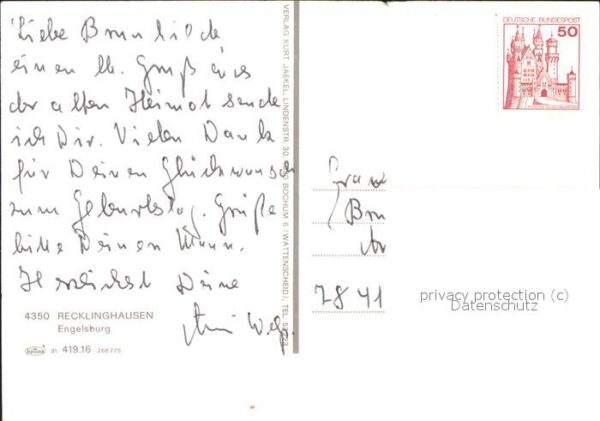 Liebe Brunhilde
einen lb. Gruß aus
der alten Heimat sende
ich Dir. Vielen Dank
für Deinen Glückwunsch
zum Geburtstag. Grüße
bitte Deinen Mann.
Herzlichst Deine
4350 RECKLINGHAUSEN
Engelsburg
31. 419.16 268776
VERLAG KURT JAEKEL, LINDENSTR. 30, BOCHUM 6 (WATTENSCHEID), TEL.
DEUTSCHE BUNDESPOST
50
Frau
7841
privacy protection (c)
Datenschutz